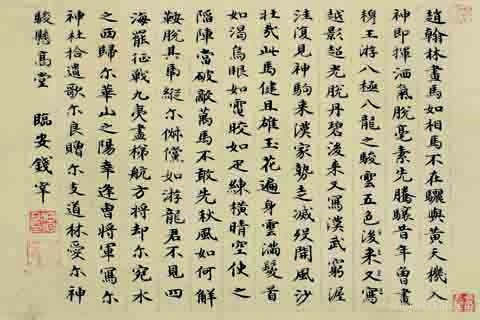 趙翰林畫馬如相馬不在驪與黃天機入
神即揮洒氣脫毫素先騰驤昔年曾畫
穆王游八極八龍之駿雲五色後来又寫
越影超光脫丹碧後来又寫漢武窮渥
洼復見神駒来漢家勢走滅没開風沙
壯哉此馬健且雄玉花遍身雲滿鬉首
如渴烏眼如電皎如疋練橫晴空使之
陷陣當破敵萬馬不敢先秋風如何解
鞍脫其縱尔倜儻如游龍君不見四
海罷征戰九夷盡梯航方将却尔宛水
之西歸尔華山之陽幸逢曹將軍寫尔
神杜拾遺歌尔良贈尔支道林愛尔神
駿懸高堂 臨安錢宰